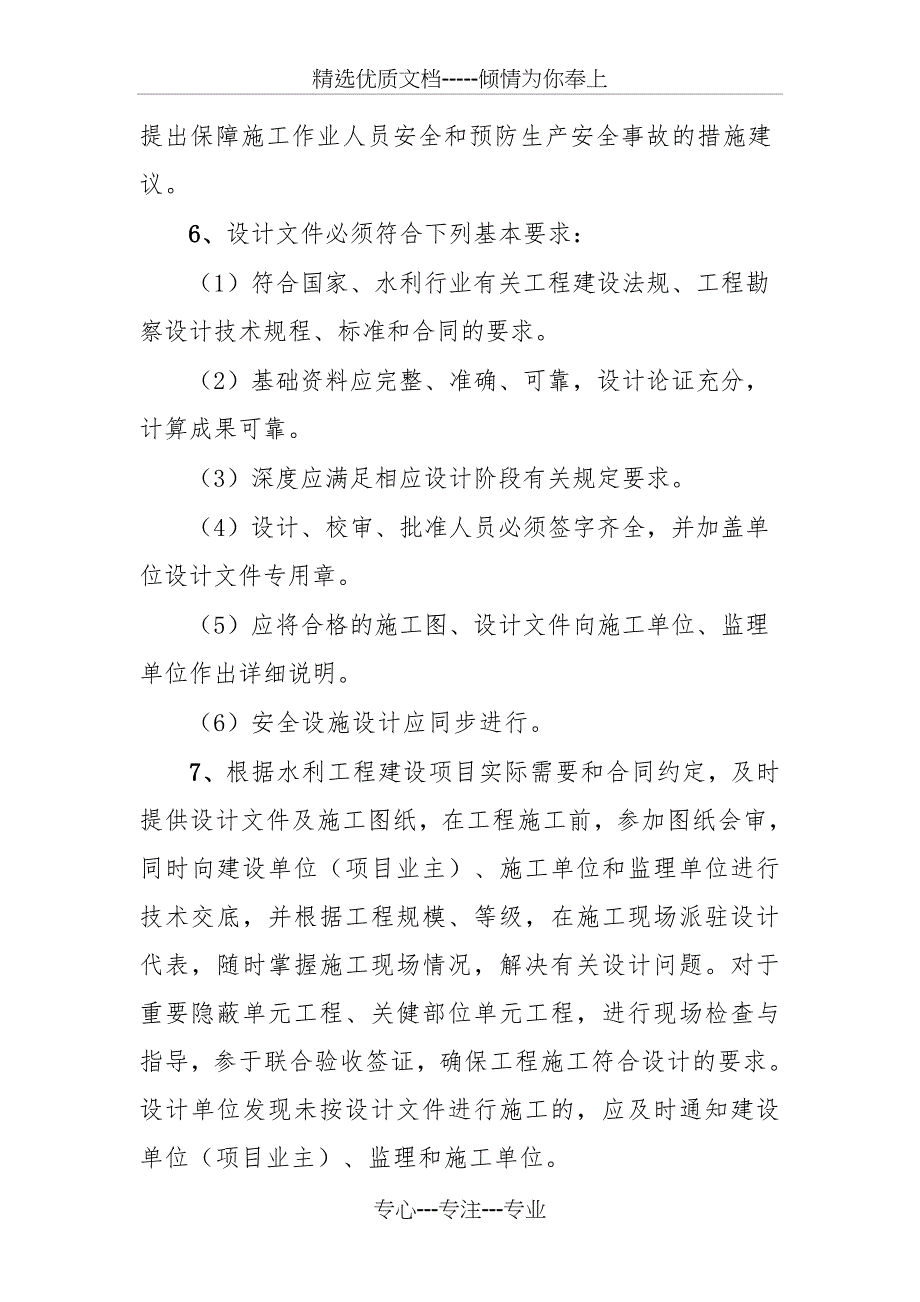 精选优质文档-----倾情为你奉上
提出保障施工作业人员安全和预防生产安全事故的措施建
议。
6、设计文件必须符合下列基本要求：
（1）符合国家、水利行业有关工程建设法规、工程勘
察设计技术规程、标准和合同的要求。
（2）基础资料应完整、准确、可靠，设计论证充分，
计算成果可靠。
（3）深度应满足相应设计阶段有关规定要求。
（4）设计、校审、批准人员必须签字齐全，并加盖单
位设计文件专用章。
（5）应将合格的施工图、设计文件向施工单位、监理
单位作出详细说明。
（6）安全设施设计应同步进行。
7、根据水利工程建设项目实际需要和合同约定，及时
提供设计文件及施工图纸，在工程施工前，参加图纸会审，
同时向建设单位（项目业主）、施工单位和监理单位进行
技术交底，并根据工程规模、等级，在施工现场派驻设计
代表，随时掌握施工现场情况，解决有关设计问题。对于
重要隐蔽单元工程、关健部位单元工程，进行现场检查与
指导，参于联合验收签证，确保工程施工符合设计的要求。
设计单位发现未按设计文件进行施工的，应及时通知建设
单位（项目业主）、监理和施工单位。
专心---专注---专业